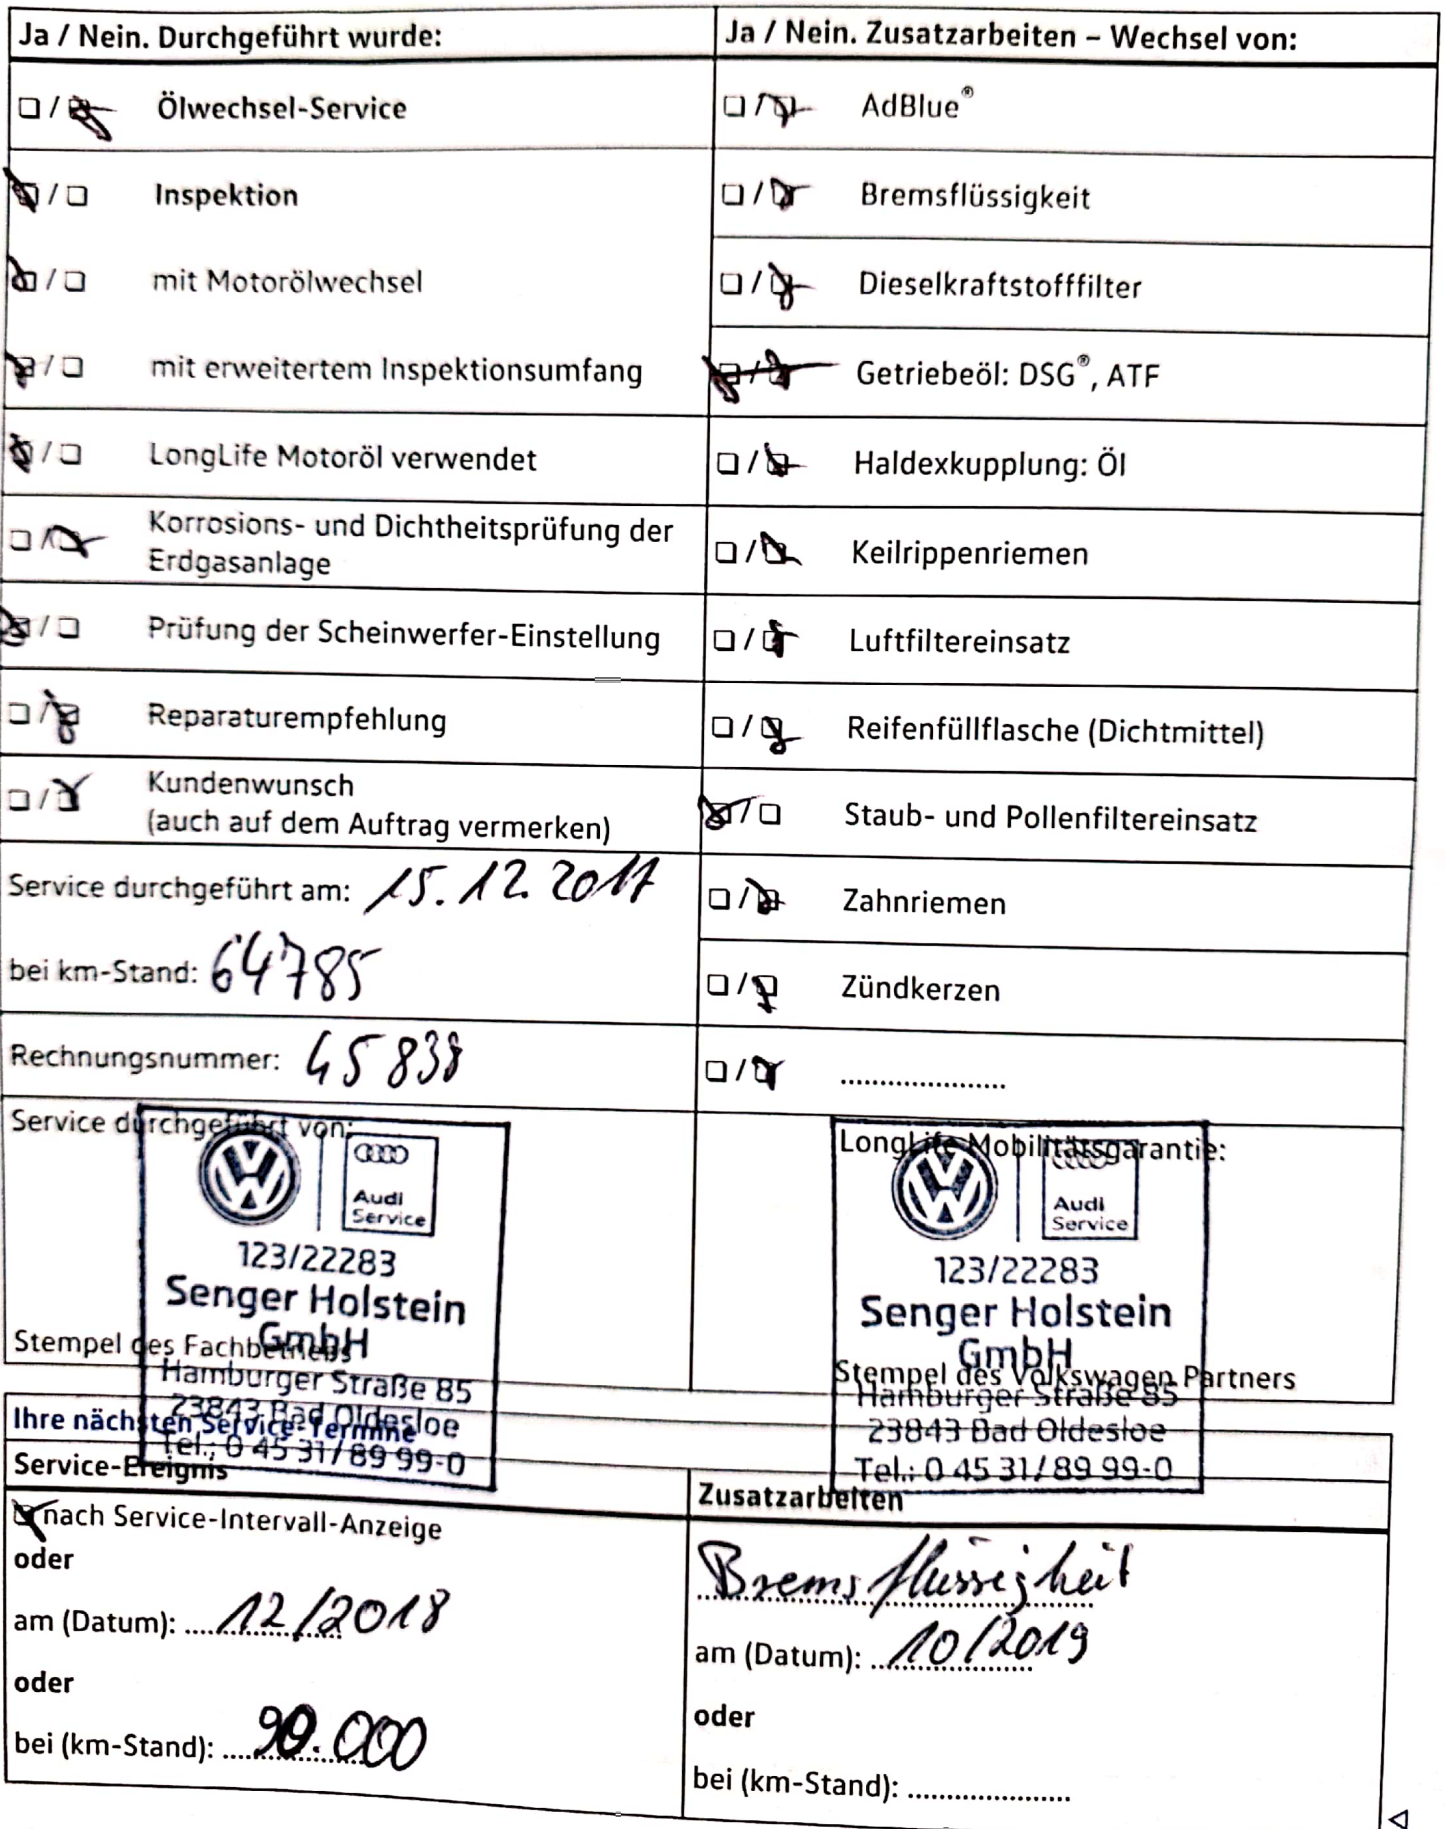 Ja / Nein. Durchgeführt wurde:
☐ / ☒ Ölwechsel-Service
☒ / ☐ Inspektion
☒ / ☐ mit Motorölwechsel
☒ / ☐ mit erweitertem Inspektionsumfang
☒ / ☐ LongLife Motoröl verwendet
☐ / ☒ Korrosions- und Dichtheitsprüfung der
Erdgasanlage
☒ / ☐ Prüfung der Scheinwerfer-Einstellung
☐ / ☒ Reparaturempfehlung
☐ / ☒ Kundenwunsch
(auch auf dem Auftrag vermerken)
Service durchgeführt am: 15.12.2017
bei km-Stand: 64785
Rechnungsnummer: 45838
Service durchgeführt von:
Audi
Service
123/22283
Senger Holstein
GmbH
Stempel des Fachbetriebs
Hamburger Straße 85
23843 Bad Oldesloe
Tel.: 0 45 31/ 89 99-0
Ja / Nein. Zusatzarbeiten – Wechsel von:
☐ / ☒ AdBlue®
☐ / ☒ Bremsflüssigkeit
☐ / ☒ Dieselkraftstofffilter
☒ / ☒ Getriebeöl: DSG®, ATF
☐ / ☒ Haldexkupplung: Öl
☐ / ☒ Keilrippenriemen
☐ / ☒ Luftfiltereinsatz
☐ / ☒ Reifenfüllflasche (Dichtmittel)
☒ / ☐ Staub- und Pollenfiltereinsatz
☐ / ☒ Zahnriemen
☐ / ☒ Zündkerzen
☐ / ☒ .....................
LongLife Mobilitätsgarantie:
Audi
Service
123/22283
Senger Holstein
GmbH
Stempel des Volkswagen Partners
Hamburger Straße 85
23843 Bad Oldesloe
Tel.: 0 45 31/ 89 99-0
Ihre nächsten Service-Termine
Service-Ereignis
☒ nach Service-Intervall-Anzeige
oder
am (Datum): 12/2018
oder
bei (km-Stand): 90.000
Zusatzarbeiten
Bremsflüssigkeit
am (Datum): 10/2019
oder
bei (km-Stand): .....................